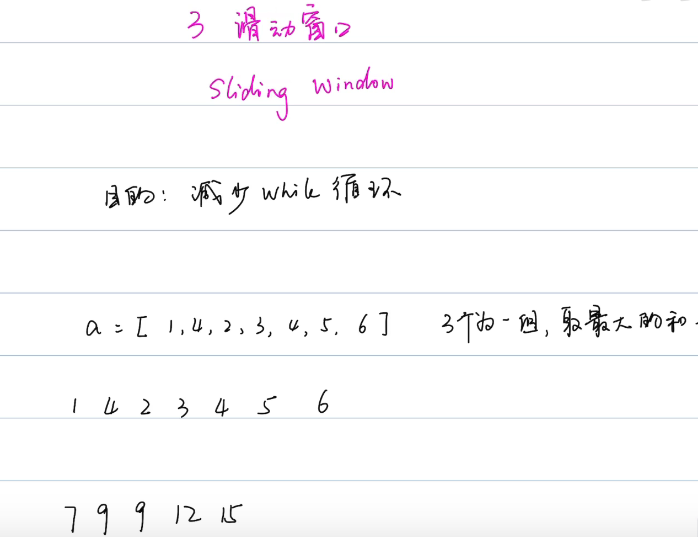 3 滑动窗口
Sliding Window
目的: 减少 while 循环
a = [ 1, 4, 2, 3, 4, 5, 6 ] 3个为一组, 取最大的和
1 4 2 3 4 5 6
7 9 9 12 15